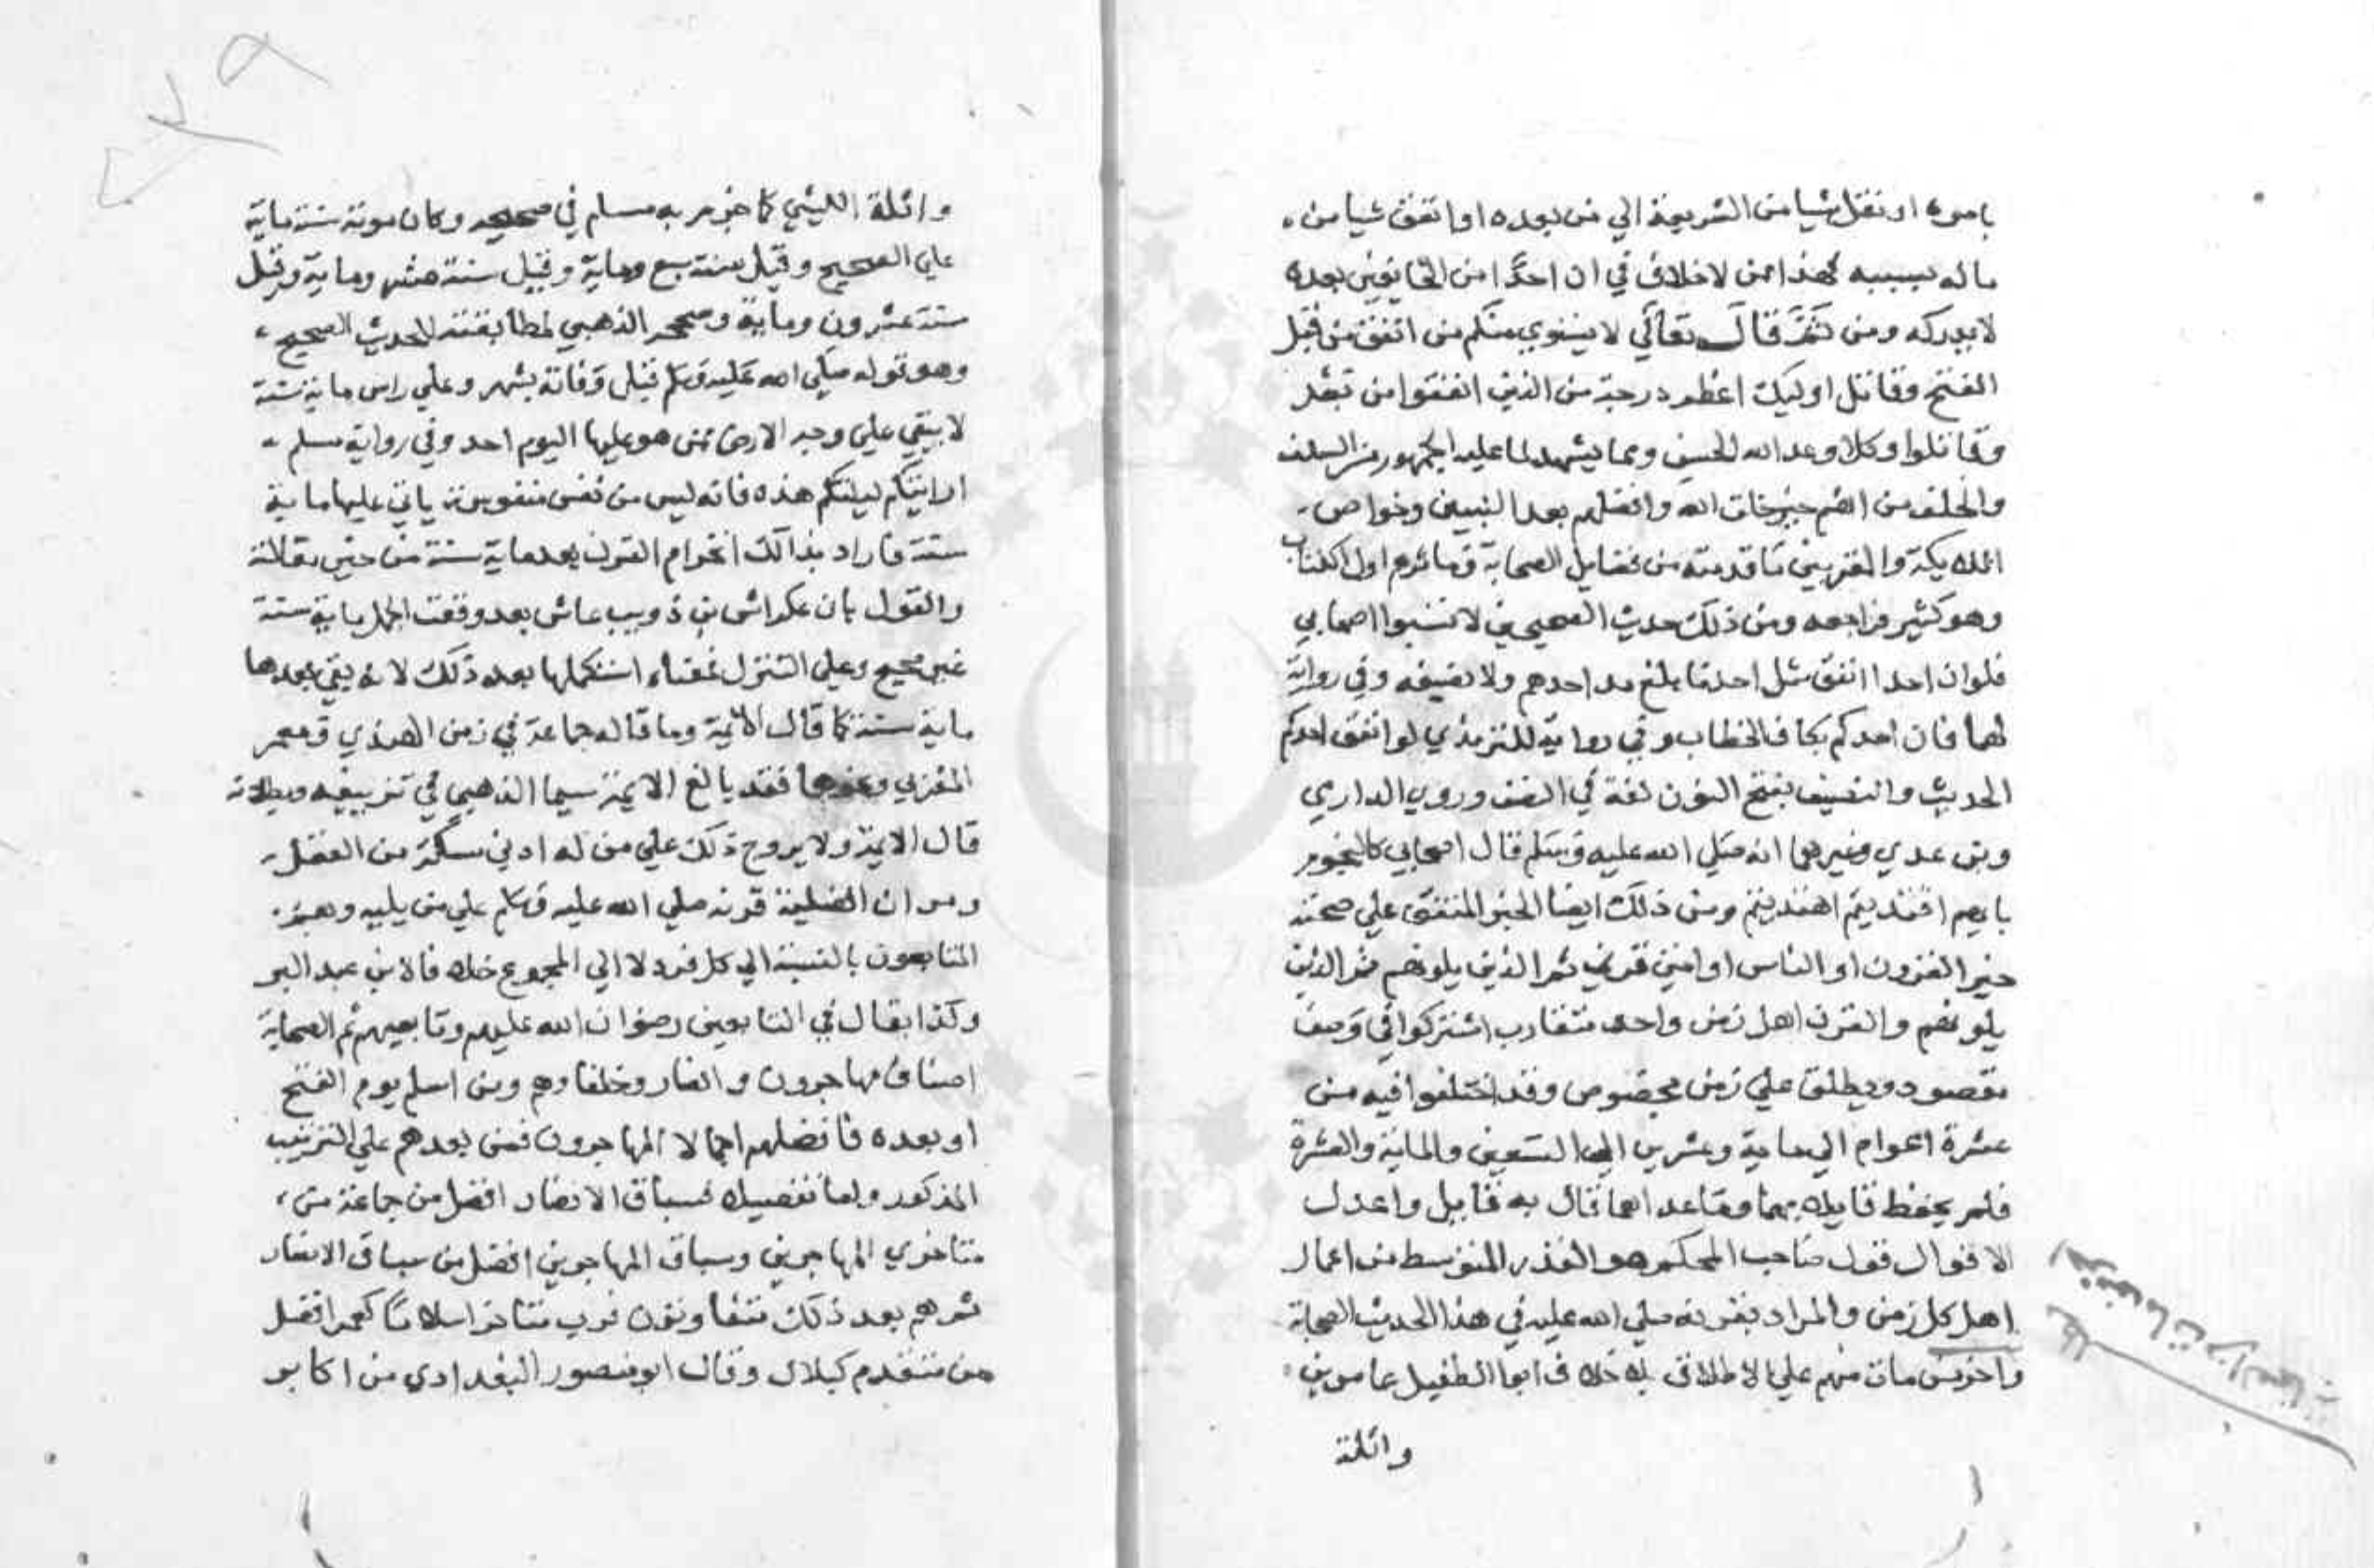 بامره او نقل شيا من الشريعة الي من بعده او انفق شيا من
ماله بسببه فهذا ممن لا خلاف في ان احدا من الجائين بعده
لا يدركه ومن ثم قال تعالي لا يستوي منكم من انفق من قبل
الفتح وقاتل اوليك اعظم درجة من الذين انفقوا من بعد
وقاتلوا وكلا وعد الله الحسني ومما يشهد لما عليه الجمهور من السلف
والخلف من انهم خير خلق الله وافضلهم بعد النبيين وخواص
الملايكة والمقربين ما قدمته من فضايل الصحابة ومآثرهم اول الكتاب
وهو كثير فراجعه ومن ذلك حديث الصحيحين لا تسبوا اصحابي
فلو ان احدا انفق مثل احد ما بلغ مد احدهم ولا نصيفه وفي رواية
لهما فان احدكم بكاف الخطاب وفي رواية للترمذي لو انفق احدكم
الحديث والنصيف بفتح النون لغة في النصف وروي الداري
وبن عدي وغيرهما انه صلي الله عليه وسلم قال اصحابي كالنجوم
بايهم اقتديتم اهتديتم ومن ذلك ايضا الخبر المتفق علي صحته
خير القرون او الناس او امتي قرني ثم الذين يلونهم ثم الذين
يلونهم والقرن اهل زمن واحد متقارب اشتركوا في وصف
مقصود ويطلق علي زمن مخصوص وقد اختلفوا فيه من
عشرة اعوام الي ماية وعشرين الا التسعين والماية والعشرة
فلم يحفظ قايل بهما وما عداهما قال به قايل واعدل
الاقوال قول صاحب المحكم هو القدر المتوسط من اعمار
اهل كل زمن والمراد بقرنه صلي الله عليه في هذا الحديث الصحابة
واخر من مات منهم علي الاطلاق بلا خلاف ابو الطفيل عامر بن
واثلة
اخر من مات من الصحابة
واثلة الليثي كما جزم به مسلم في صحيحه وكان موته سنة ماية
علي الصحيح وقيل سنة سبع وماية وقيل سنة عشر وماية وقيل
سنة عشرون وماية وصححه الذهبي لمطابقته للحديث الصحيح
وهو قوله صلي الله عليه وسلم قبل وفاته بشهر وعلي راس ماية سنة
لا يبقي علي وجه الارض ممن هو عليها اليوم احد وفي رواية مسلم
ارايتكم ليلتكم هذه فانه ليس من نفس منفوسة ياتي عليها ماية
سنة فاراد بذالك انخرام القرن بعد ماية سنة من حين مقالته
والقول بان عكراش بن ذويب عاش بعد وقعت الجمل ماية سنة
غير صحيح وعلي التنزل فمعناه استكملها بعد ذلك لا انه بقي بعدها
ماية سنة كما قال الائمة وما قاله جماعة في زمن الهندي ومعمر
المغربي ونحوهما فقد بالغ الايمة سيما الذهبي في تزييفه وبطلانه
قال الايمة ولا يروج ذلك علي من له ادني مسكة من العقل
ومر ان افضلية قرنه صلي الله عليه وسلم علي من يليه وهم
التابعون بالنسبة الي كل فرد لا الي المجموع خلافا لابن عبد البر
وكذا يقال في التابعين رضوان الله عليهم وتابعيهم ثم الصحابة
اصناف مهاجرون وانصار وخلفاوهم ومن اسلم يوم الفتح
او بعده فافضلهم اجمالا المهاجرون فمن بعدهم علي الترتيب
المذكور واما تفصيلا فسباق الانصار افضل من جماعة من
متاخري المهاجرين وسباق المهاجرين افضل من سباق الانصار
ثم هم بعد ذلك متفاوتون فرب متاخر اسلاما كعمر افضل
من متقدم كبلال وقال ابو منصور البغدادي من اكابر